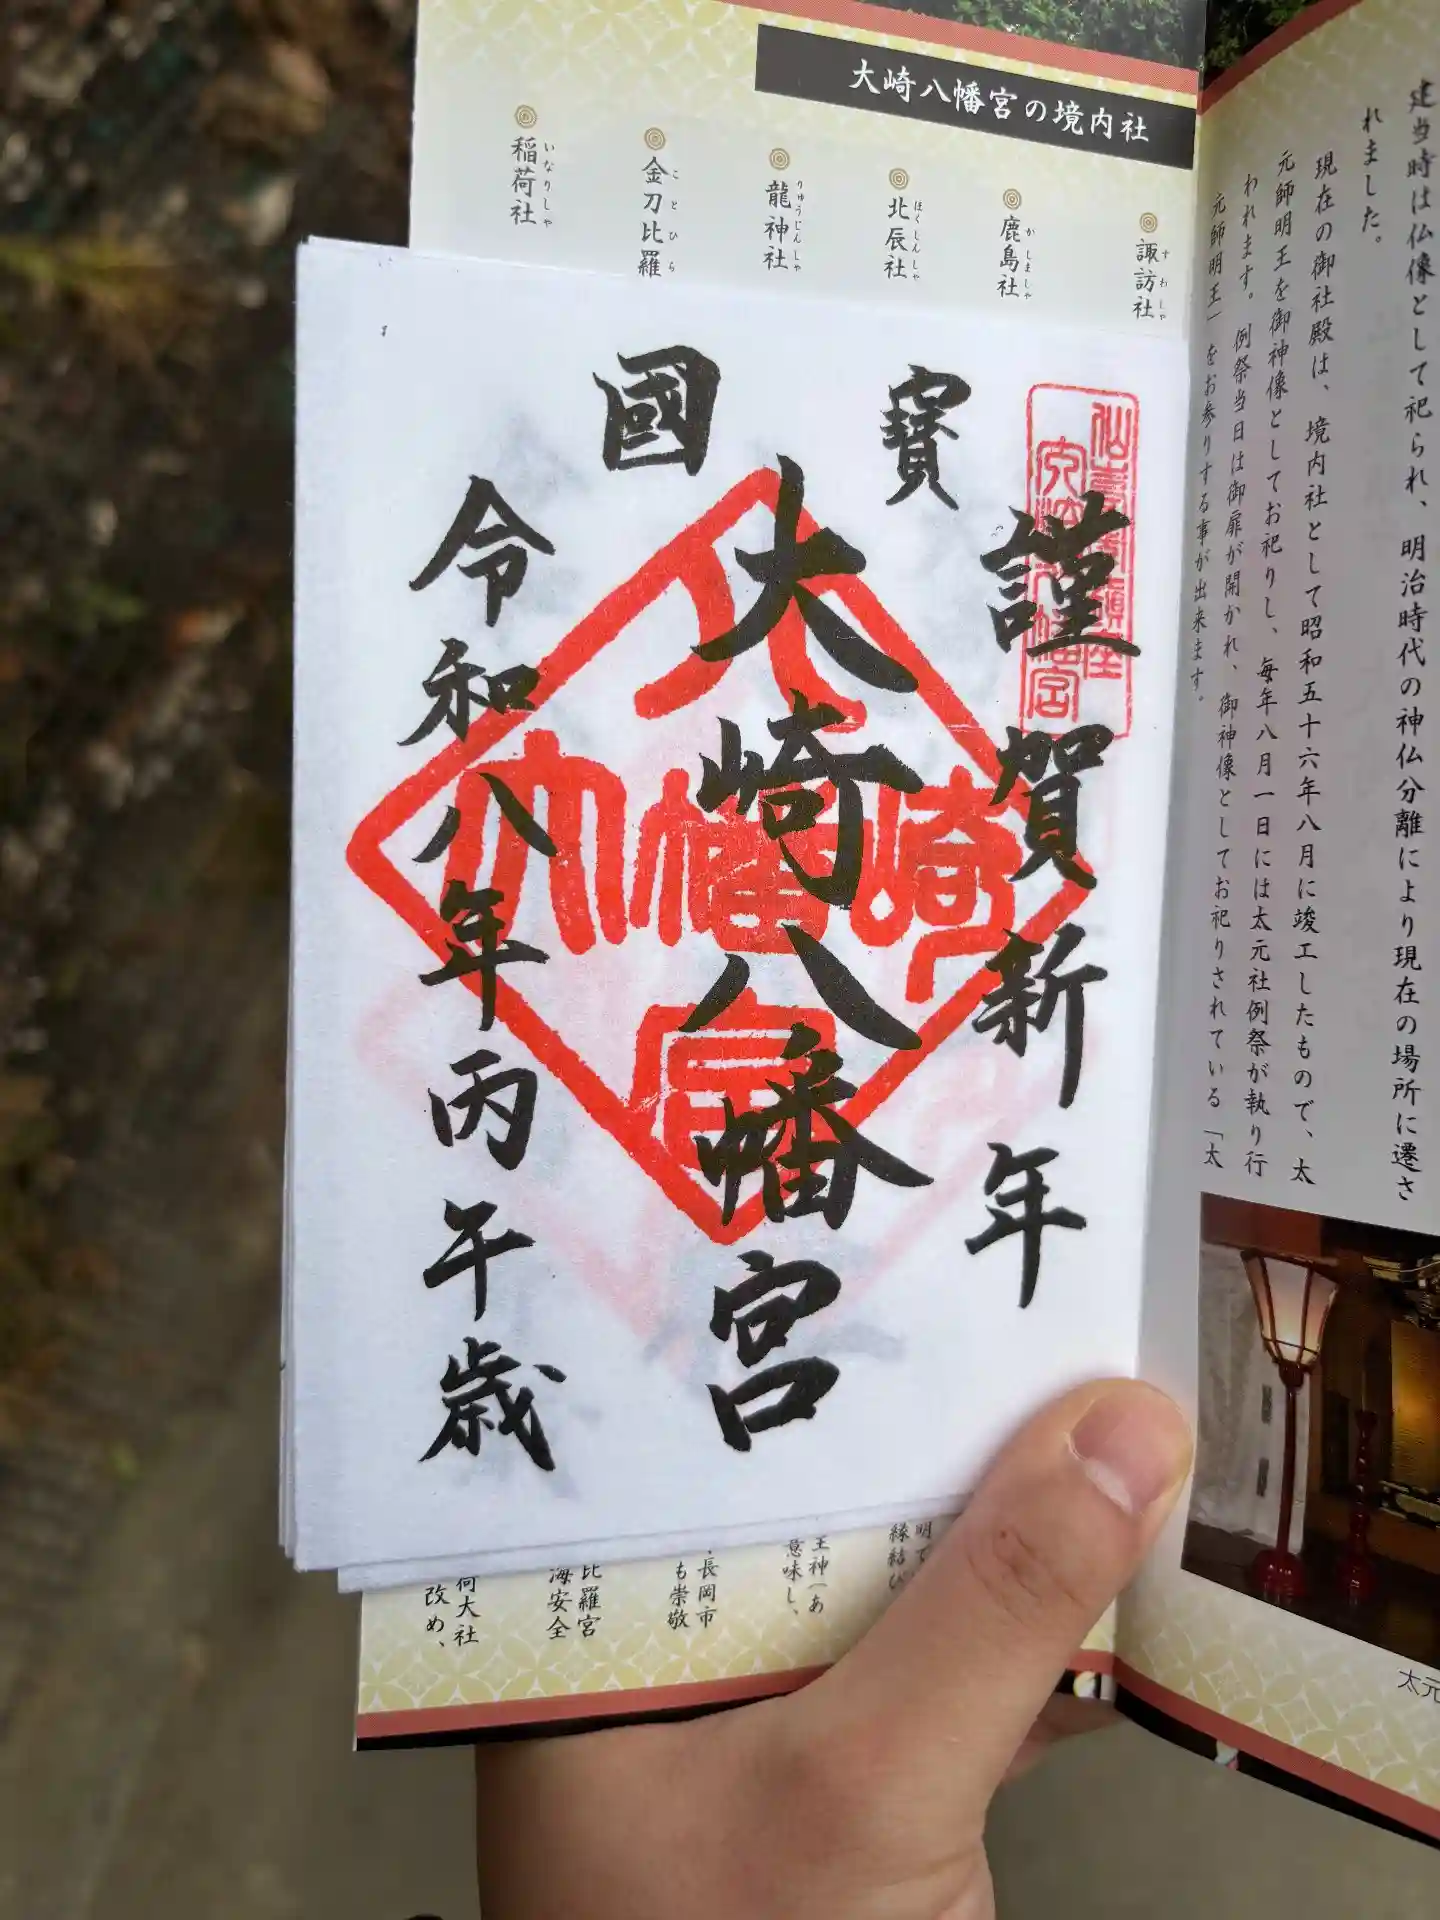 建当時は仏像として祀られ、明治時代の神仏分離により現在の場所に遷さ
れました。
現在の御社殿は、境内社として昭和五十六年八月に竣工したもので、太
元師明王を御神像としてお祀りし、毎年八月一日には太元社例祭が執り行
われます。例祭当日は御扉が開かれ、御神像としてお祀りされている「太
元師明王」をお参りする事が出来ます。
太元
大崎八幡宮の境内社
諏訪社
すわしゃ
鹿島社
かしましゃ
北辰社
ほくしんしゃ
龍神社
りゅうじんしゃ
金刀比羅
ことひら
稲荷社
いなりしゃ
謹賀新年
寳
國
大崎八幡宮
令和八年丙午歳
大崎八幡宮
縁結び
王神(あ
意味し、
長岡市
も崇敬
比羅宮
海安全
荷大社
改め、